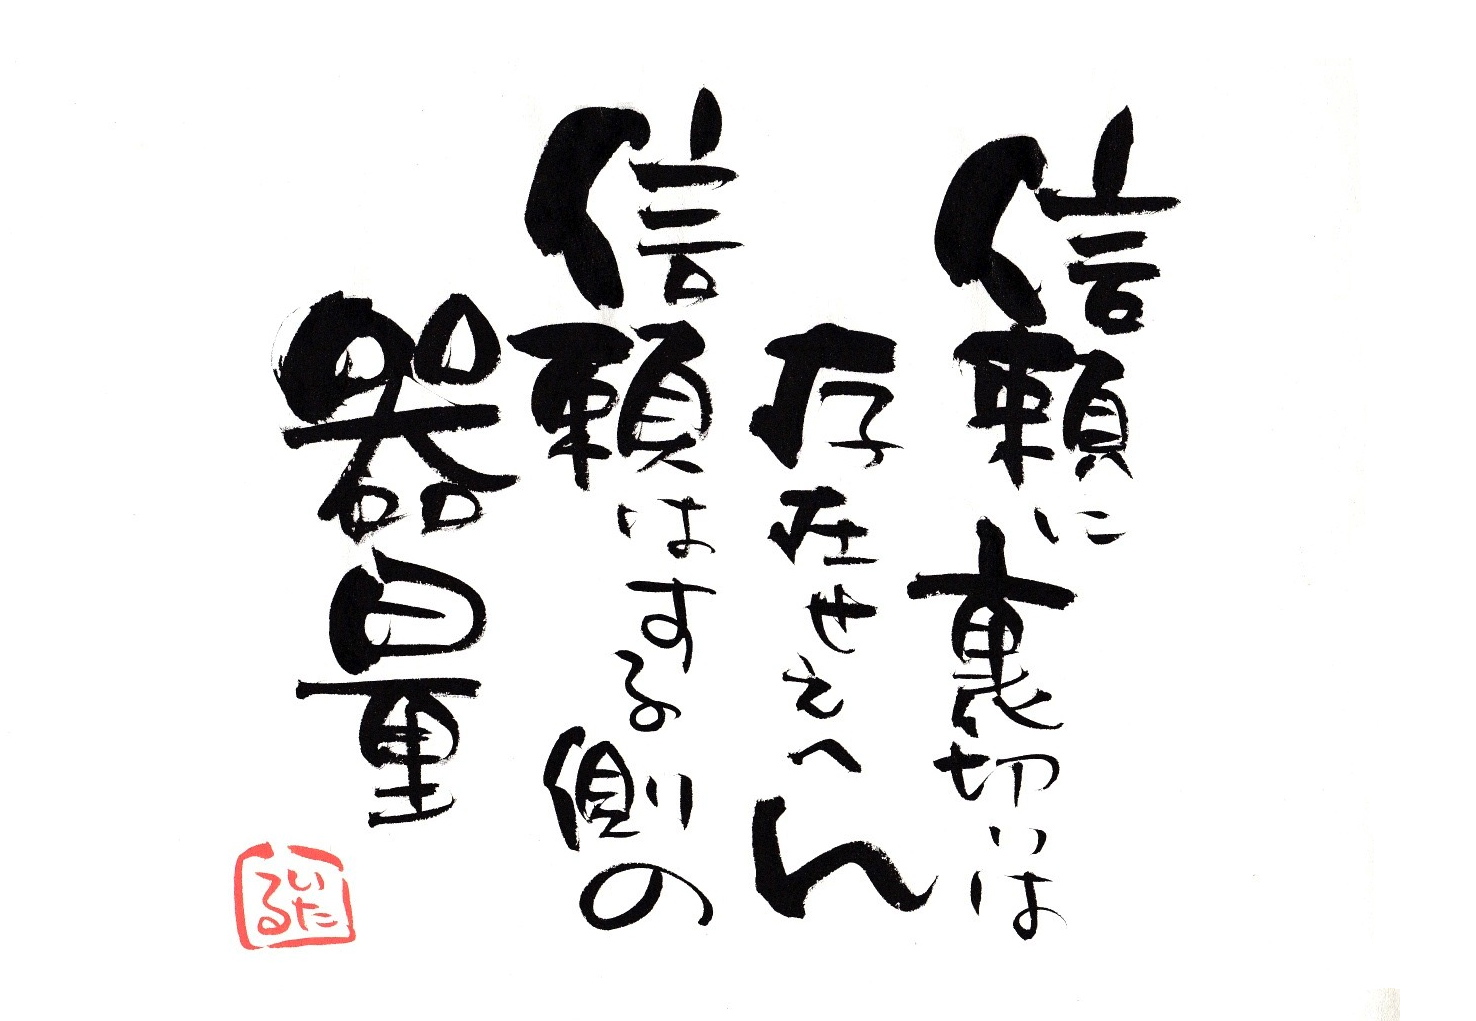 信頼に裏切りは
存在せぇへん
信頼はする側の
器量
いた
る